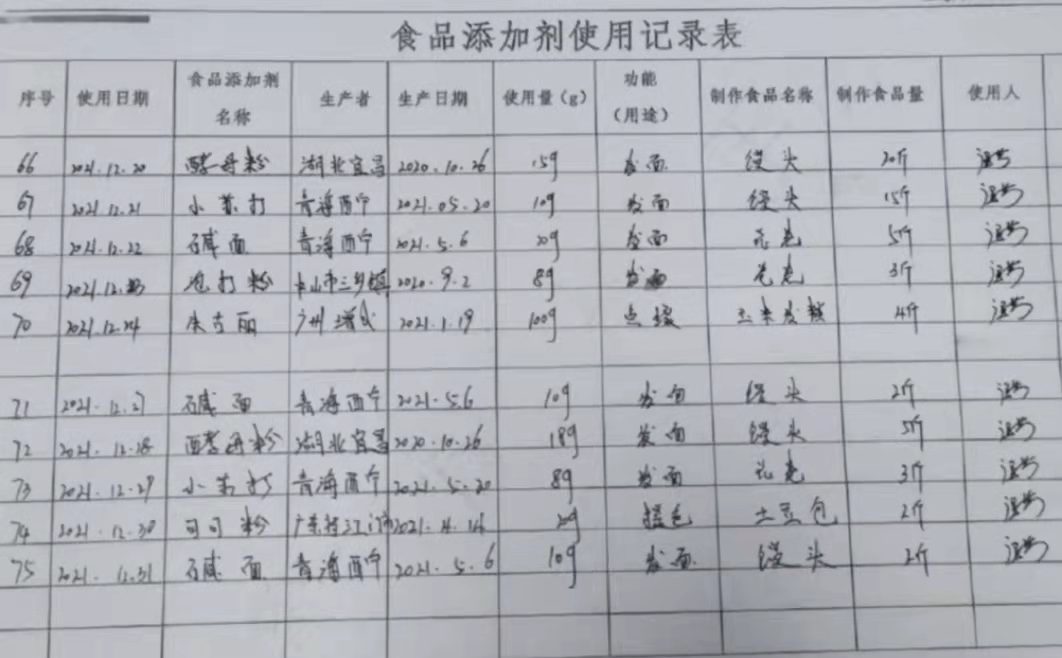 食品添加剂使用记录表
序号 使用日期 食品添加剂名称 生产者 生产日期 使用量(g) 功能(用途) 制作食品名称 制作食品量 使用人
66 2021.12.20 酵母粉 湖北宜昌 2020.10.26 15g 发面 馒头 20斤
67 2021.12.21 小苏打 青海西宁 2021.05.20 10g 发面 馒头 15斤
68 2021.12.22 碱面 青海西宁 2021.5.6 20g 发面 花卷 5斤
69 2021.12.23 泡打粉 中山市三乡镇 2020.9.2 8g 发面 花卷 3斤
70 2021.12.24 朱古丽 广州增城 2021.1.19 100g 点缀 玉米发糕 4斤
71 2021.12.27 碱面 青海西宁 2021.5.6 10g 发面 馒头 2斤
72 2021.12.28 酵母粉 湖北宜昌 2020.10.26 18g 发面 馒头 5斤
73 2021.12.29 小苏打 青海西宁 2021.5.20 8g 发面 花卷 3斤
74 2021.12.30 可可粉 2021.4.26 20g 提色 土豆包 2斤
75 2021.12.31 碱面 青海西宁 2021.5.6 10g 发面 馒头 2斤